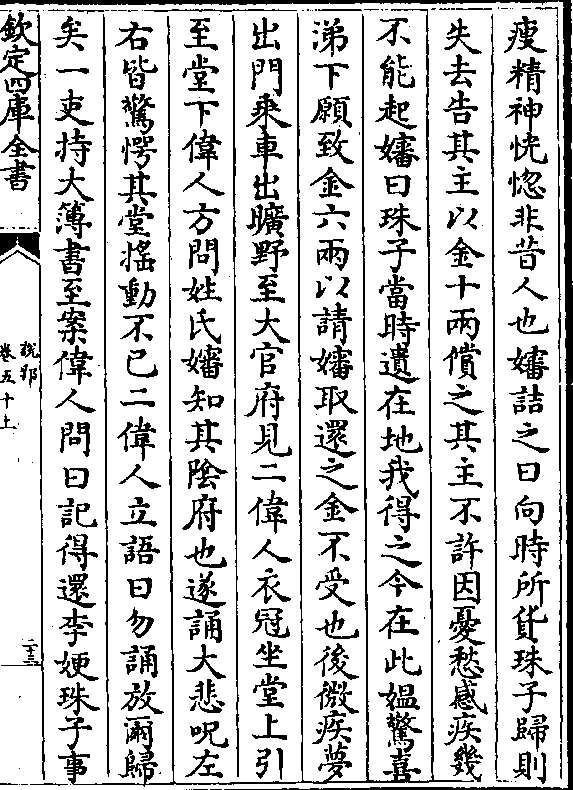 瘦精神恍惚非昔人也嬸詰之曰向時所貨珠子歸則
失去告其主以金十兩償之其主不許因憂愁感疾幾
不能起嬸曰珠子當時遺在地我得之今在此媪驚喜
涕下願致金六兩以請嬸取還之金不受也後微疾夢
出門乗車出曠野至大官府見二偉人衣冠坐堂上引
至堂下偉人方問姓氏嬸知其隂府也遂誦大悲呪左
右皆驚愕其堂揺動不已二偉人立語曰勿誦放爾歸
矣一吏持大簿書至案偉人問曰記得還李㛐珠子事
欽定四庫全書
說郛
卷五十上
二十三